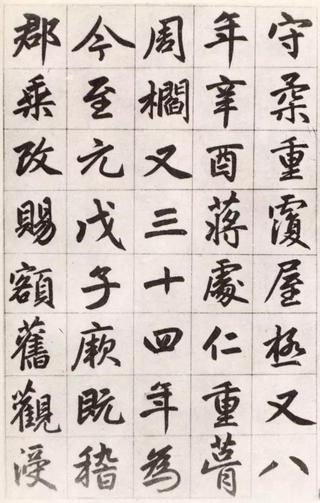 守柔重覆屋極又八
年辛酉蔣處仁重葺
周櫩又三十四年為
今至元戊子厥既稽
郡乘攷賜額舊觀浸